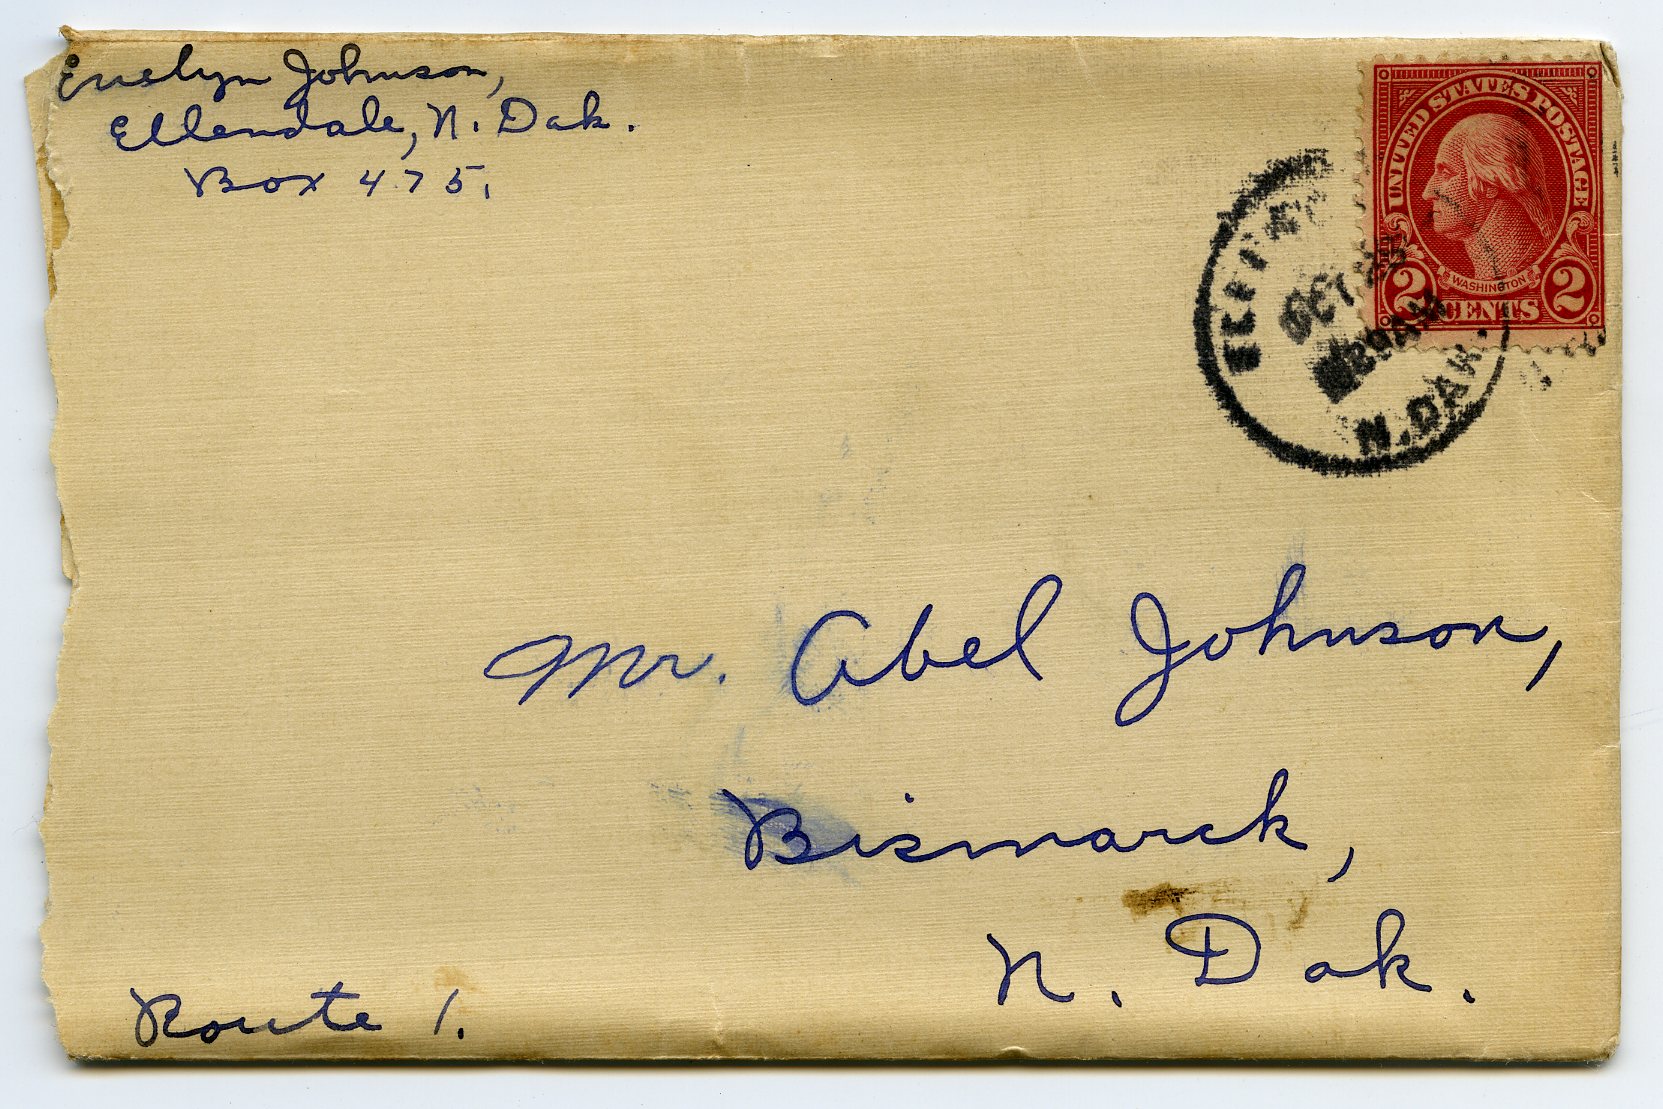 Evelyn Johnson,
Ellendale, N. Dak.
Box 475.
UNITED STATES POSTAGE
WASHINGTON
2 CENTS 2
OCT 25
N. DAK.
Mr. Abel Johnson,
Bismarck,
N. Dak.
Route 1.